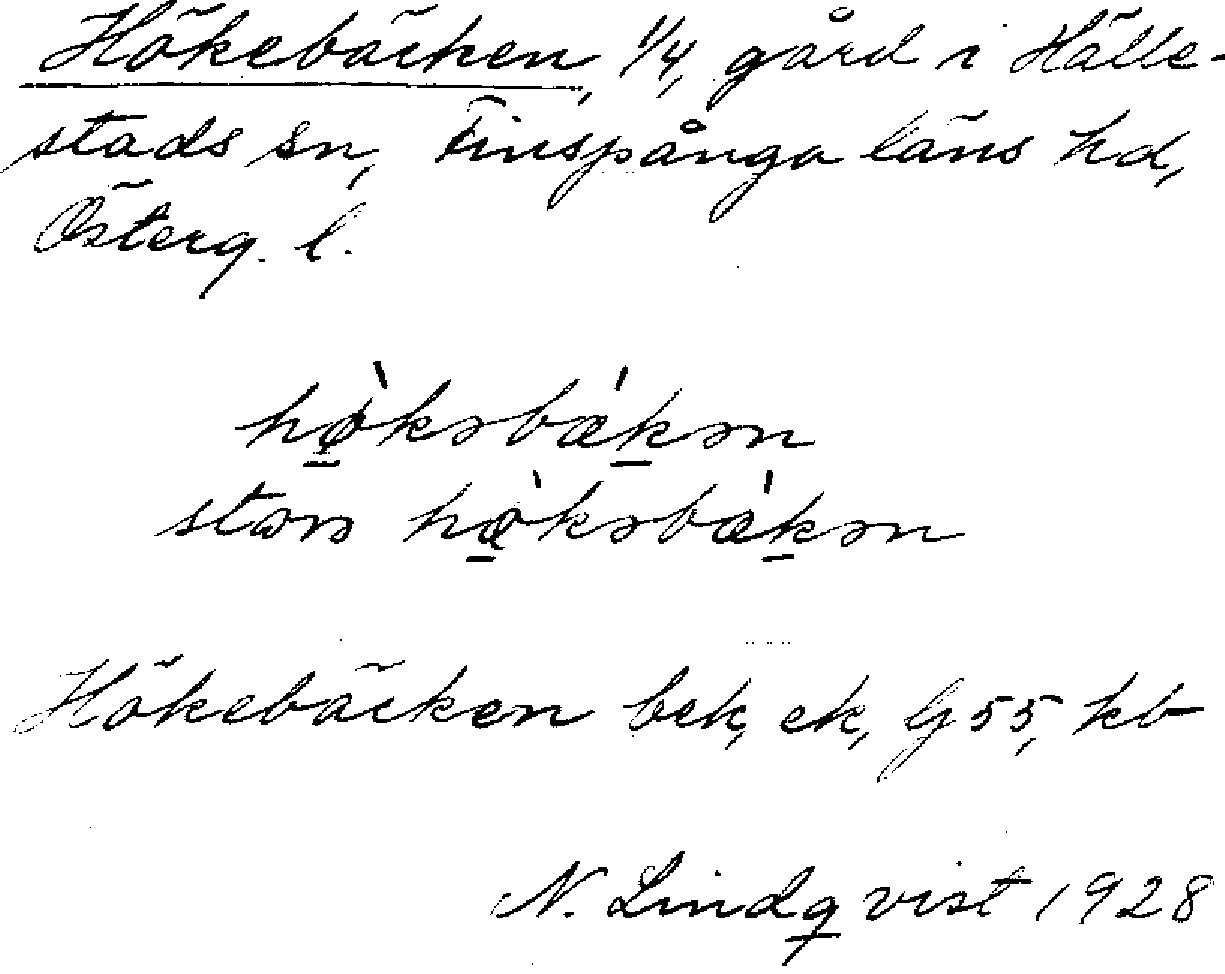 Hökebäcken, 1/4, gård i Hälle-
stads sn, Finspånga läns hd,
Österg. l.
hø̠̀kəbǽk̠ən
stəns hø̠̀kəbǽk̠ən
Hökebäcken bek, ek, G 55, kb
N. Lindqvist 1928